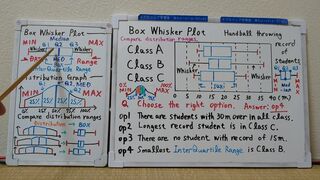 Box Whisker Plot
Median
MIN Q1 Q2 Q3 MAX
Whisker
Whisker
MED
Range
InterQuartile Range
MIN
MAX
25% 25% 25% 25%
Compare distribution ranges
Distribution → BOX
Box Whisker Plot
Handball throwing
Compare distribution ranges
Class A
Class B
Class C
MIN
MAX
Whisker
Whisker
record
of
students
Q1 Q2 Q3
0 5 10 15 20 25 30 35 40 (m)
Q. Choose the right option. Answer: op4
op1 There are students with 30m over in all class.
op2 Longest record student is in Class C.
op3 There are no students with record of 15m.
op4 Smallest InterQuartile Range is Class B